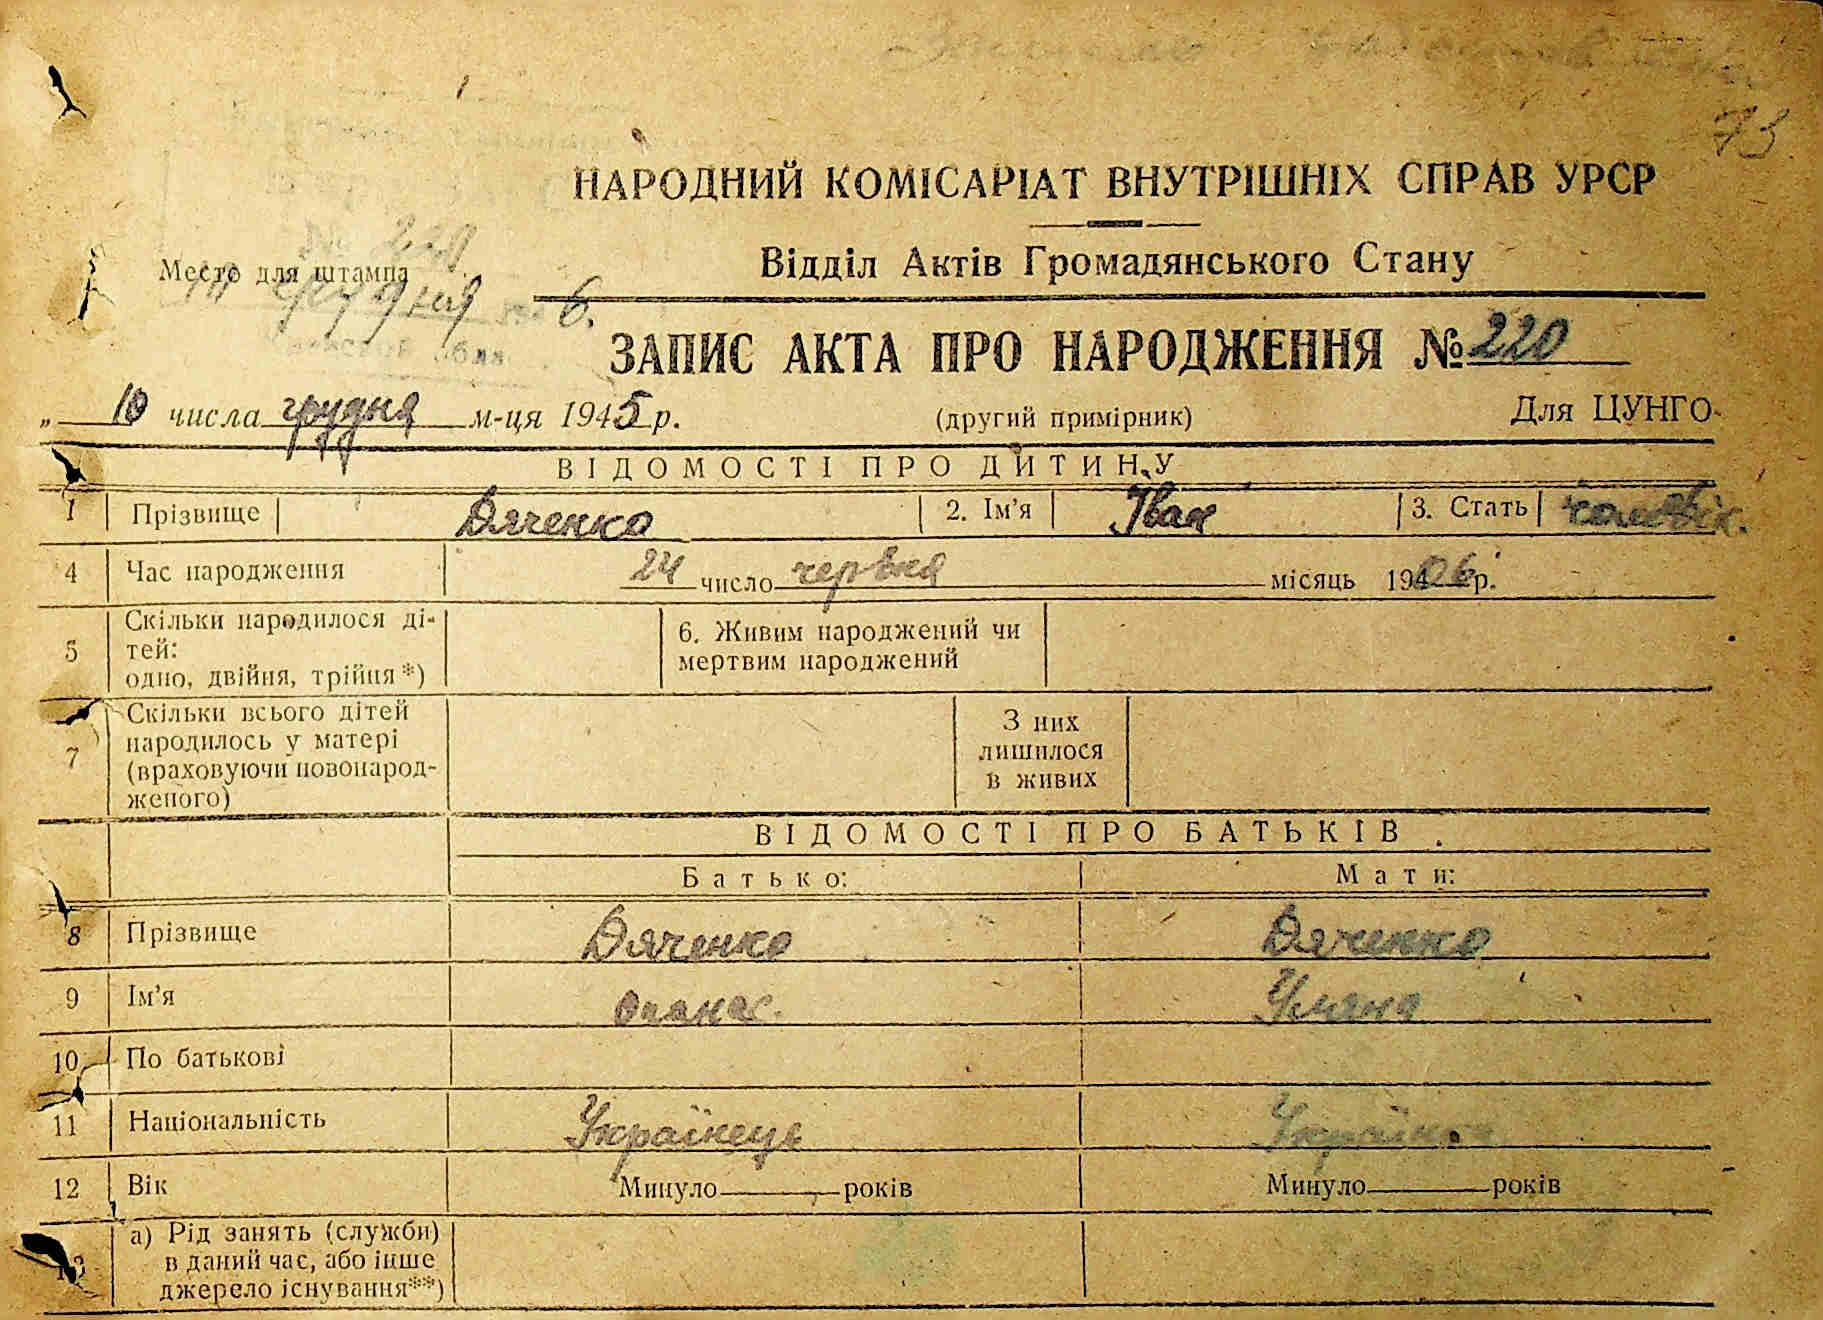 73
НАРОДНИЙ КОМІСАРІАТ ВНУТРІШНІХ СПРАВ УРСР
Відділ Актів Громадянського Стану
Место для штампа
ЗАПИС АКТА ПРО НАРОДЖЕННЯ № 220
„ 10 числа грудня м-ця 1945 р. (другий примірник) Для ЦУНГО
ВІДОМОСТІ ПРО ДИТИНУ
1 Прізвище Дяченко 2. Ім'я Іван 3. Стать чоловік.
4 Час народження 24 число червня місяць 1906 р.
5 Скільки народилося ді-
тей:
одно, двійня, трійня*)
6. Живим народжений чи
мертвим народжений
7 Скільки всього дітей
народилось у матері
(враховуючи новонарод-
женого)
З них
лишилося
в живих
ВІДОМОСТІ ПРО БАТЬКІВ
Батько: Мати:
8 Прізвище Дяченко Дяченко
9 Ім'я Опанас Уляна
10 По батькові
11 Національність Українець Українка
12 Вік Минуло років Минуло років
13 а) Рід занять (служби)
в даний час, або інше
джерело існування**)